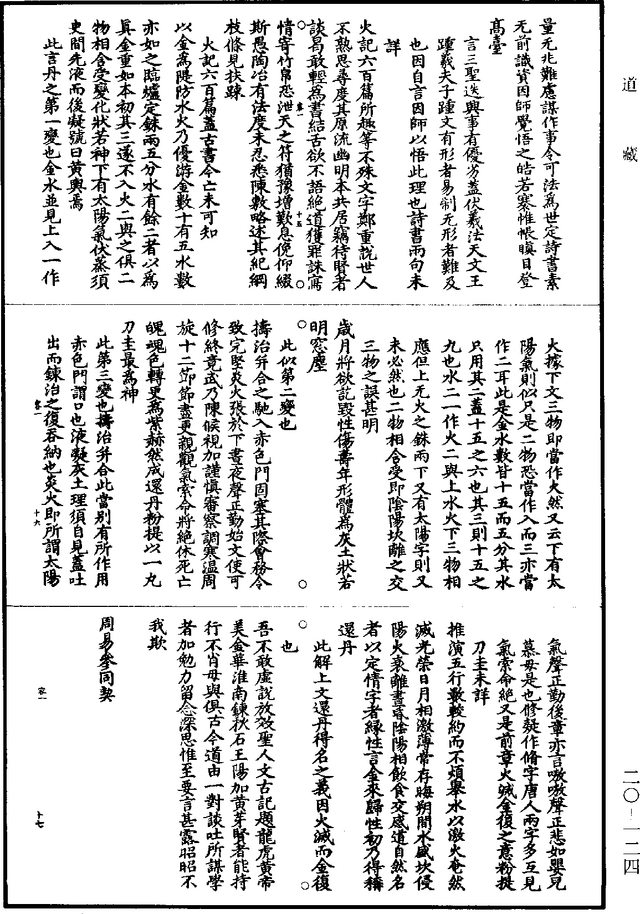 道藏
量无兆難慮謀作事令可法爲世定詩書素
无前識資因師覺悟之皓若褰帷帳瞋目登
高臺
言三聖迭興事有優劣蓋伏羲法天文王
踵羲夫子踵文有形者易制无形者難及
也因自言因師以悟此理也詩書兩句未
詳
火記六百篇所趣等不殊文字鄭重說世人
不熟思尋度其原流幽明本共居竊待賢者
談曷敢輕爲書結舌欲不語絶道獲罪誅寫
情寄竹帛恐泄天之符猶豫增歎息俛仰綴
斯愚陶冶有法度未忍悉陳數略述其紀綱
枝條見扶踈
火記六百篇蓋古書今亡未可知
以金爲隄防水火乃優游金數十有五水數
亦如之臨爐定銖兩五分水有餘二者以爲
眞金重如本初其三遂不入火二與之俱三
物相含受變化狀若神下有太陽氣伏蒸須
臾間先液而後凝號曰黄輿焉
此言丹之第一變也金水並見上入一作
火據下文三物即當作火然又云下有太
陽氣則似只是二物恐當作入而三亦當
作二耳此是金水數皆十五而五分其水
只用其二蓋十五之六也其三則十五之
九也水二一作火二與上水火下三物相
應但上无火之銖兩下又有太陽字則又
未必然也二物相含受即陰陽坎離之交
三物之誤甚明
歲月將欲訖毀性傷壽年形體爲灰土狀若
明窓塵
此似第二變也
擣治并合之馳入赤色門固塞其際會務令
致完堅炎火張於下晝夜聲正勤始文使可
修終竟武乃陳候視加謹愼審察調寒温周
旋十二節節盡更親觀氣索命將絶休死亡
魄魂色轉更爲紫赫然成還丹粉提以一丸
刀圭最爲神
此第三變也擣治并合此當别有所作用
赤色門謂口也液凝灰土理須自見蓋吐
出而鍊治之復吞納也炎火即所謂太陽
氣聲正勤後章亦言嗷嗷聲正悲如嬰兒
慕母是也修疑作脩字唐人兩字多互見
氣索命絶又是前章火滅金復之意粉提
刀圭未詳
推演五行數較約而不煩舉水以激火奄然
滅光榮日月相激薄常存晦朔間水盛坎侵
陽火衰離晝昏陰陽相飲食交感道自然名
者以定情字者緣性言金來歸性初乃得稱
還丹
此解上文還丹得名之義因火滅而金復
也
吾不敢虛說放效聖人文古記題龍虎黄帝
美金華淮南鍊秋石王陽加黄芽賢者能持
行不肖毋與俱古今道由一對談吐所謀學
者加勉力留念深思惟至要言甚露昭昭不
我欺
周易參同契
容一 十五
容一 十六
容一 十七
二〇-一二四